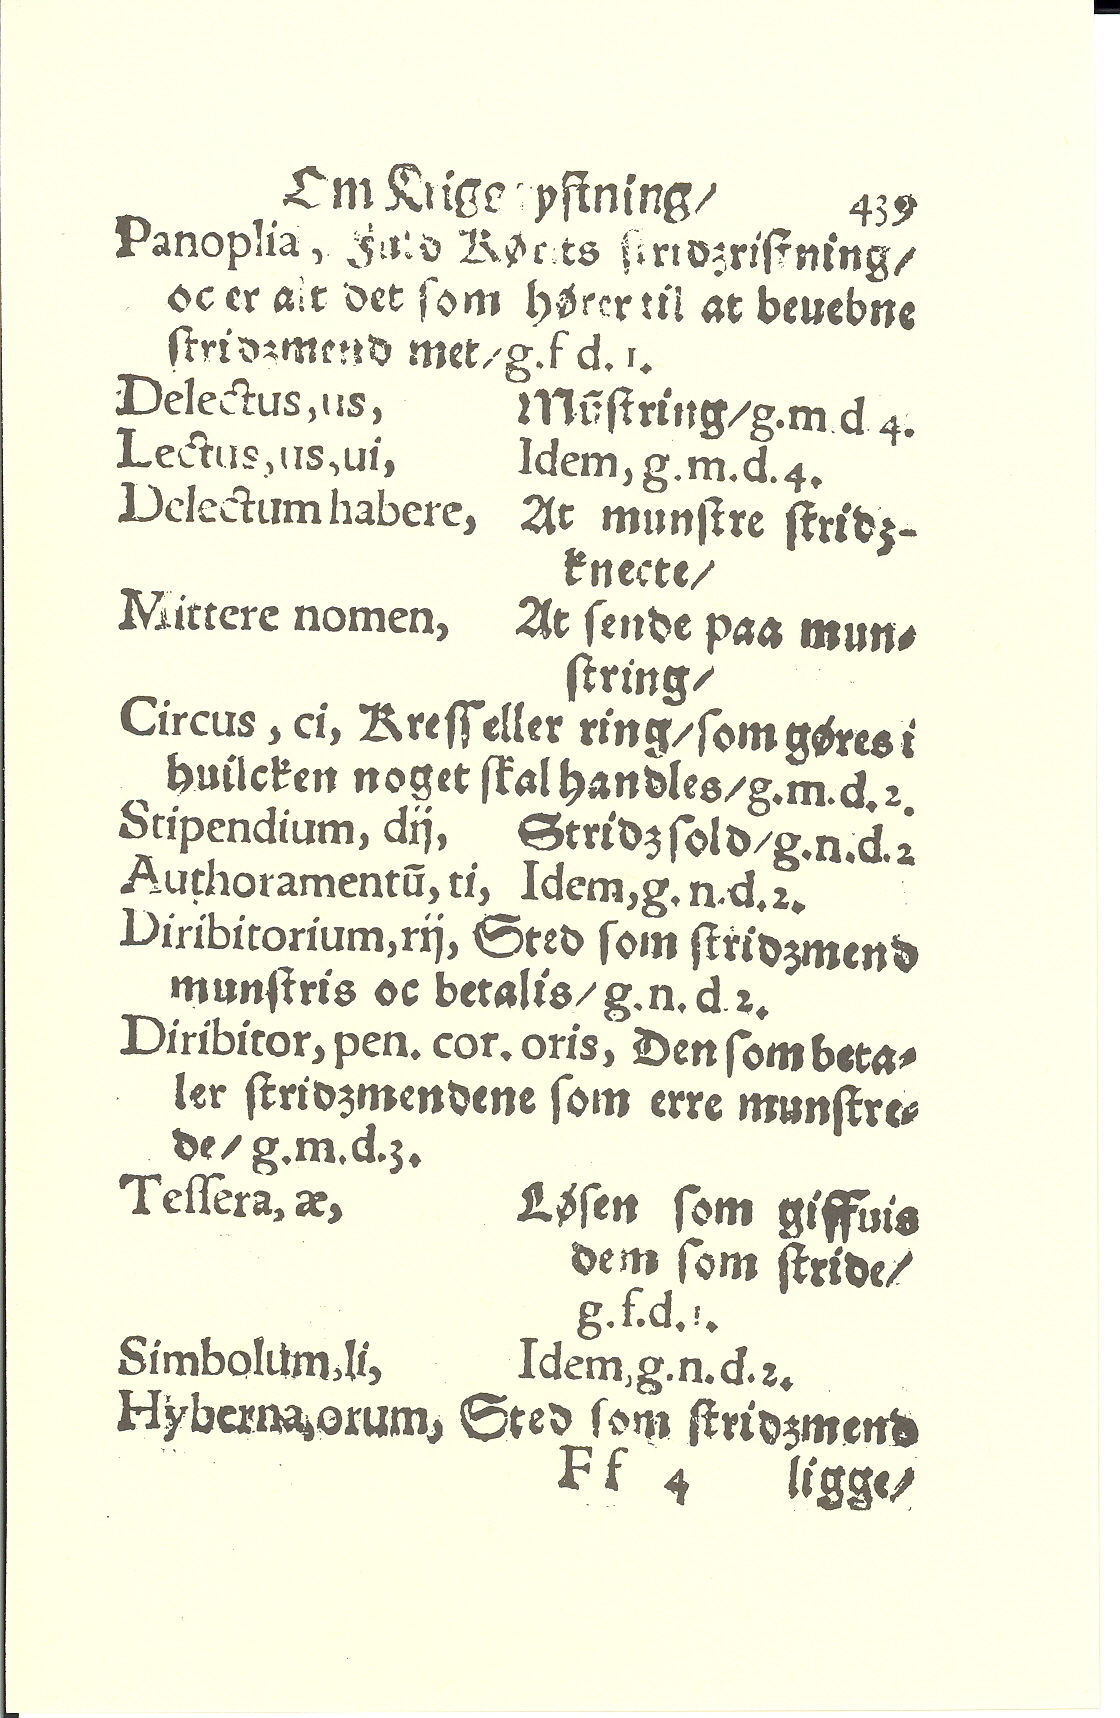 Om Krige ystning/ 439
Panoplia, Fuld Kørits stridzristning/
oc er alt det som hører til at beuebne
stridzmend met/g.f d. 1.
Delectus,us, Mũstring/g.m d 4.
Lectus,us,ui, Idem, g.m.d.4.
Delectum habere, At munstre stridz-
knecte/
Mittere nomen, At sende paa mun-
string/
Circus, ci, Kreſſ eller ring/som gøres i
huilcken noget skal handles/g.m.d.2.
Stipendium, dij, Stridz sold/g.n.d.2
Authoramentũ, ti, Idem,g.n.d.2.
Diribitorium,rij, Sted som stridzmend
munstris oc betalis/g.n.d 2.
Diribitor, pen. cor. oris, Den som beta-
ler stridzmendene som erre munstre-
de/ g.m.d.3.
Tessera, æ, Løsen som giffuis
dem som stride/
g.f.d.1.
Simbolum,li, Idem,g.n.d.2.
Hyberna,orum, Sted som stridzmend
Ff 4 ligge/